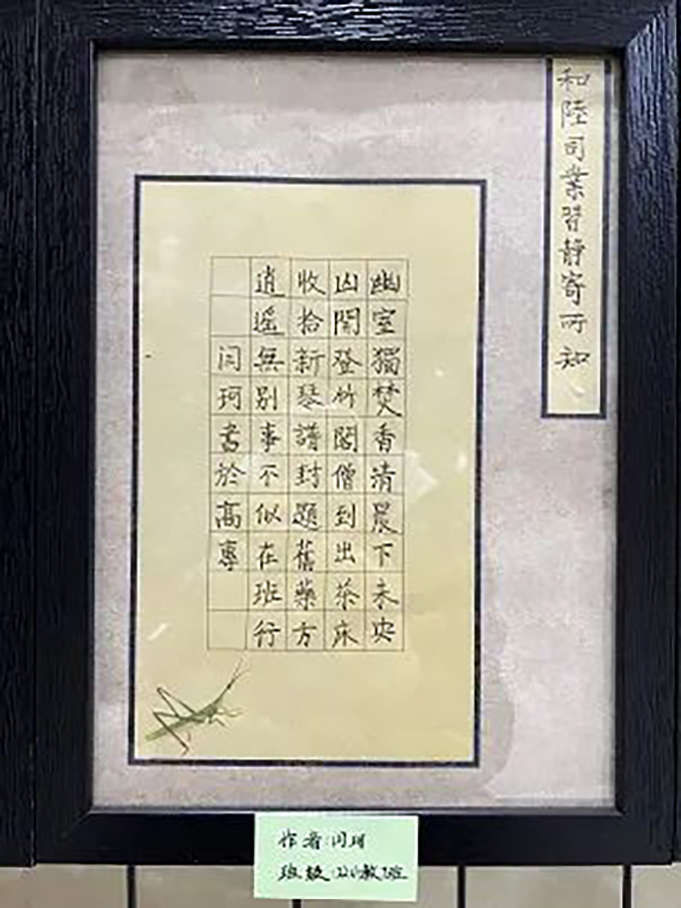 和陸司業習靜寄所知
幽室獨焚香清晨下未央
山開登竹閣僧到出茶床
收拾新琴譜封題舊藥方
逍遙無別事不似在班行
闫珂書於高專
作者:闫珂